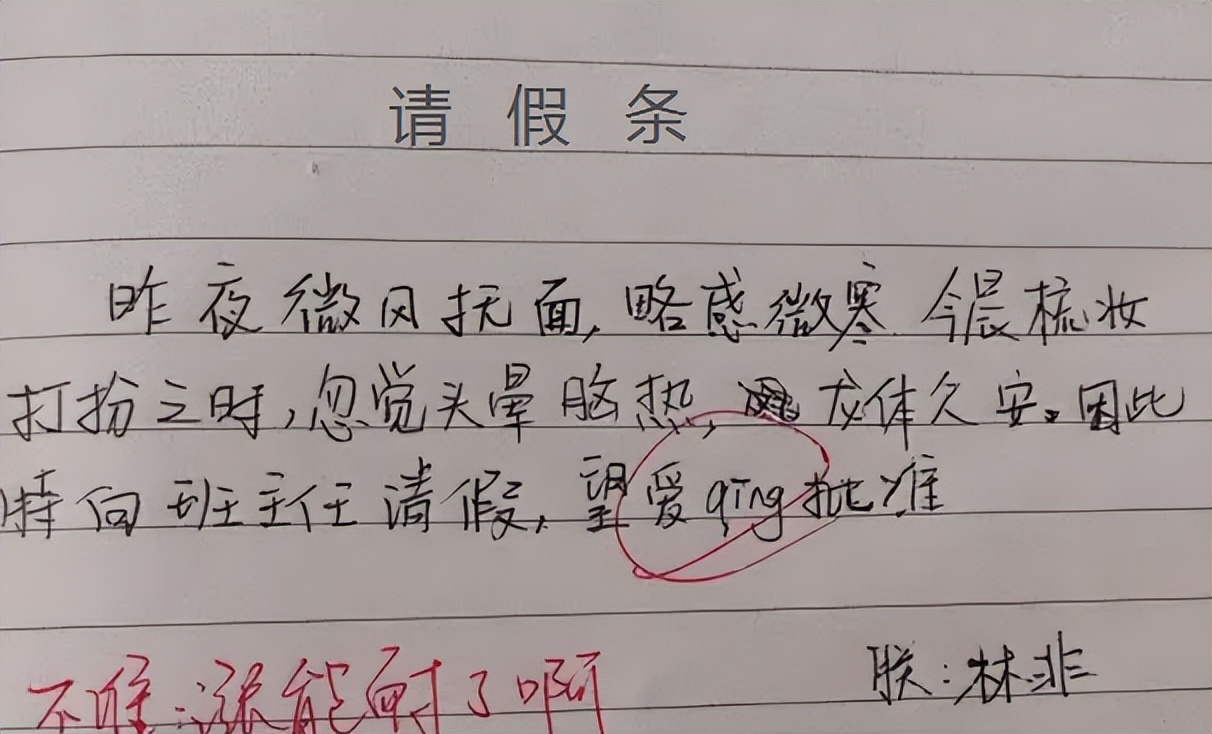 请 假 条
昨夜微风抚面,略感微寒.今晨梳妆
打扮之时,忽觉头晕脑热,龙体久安。因此
特向班主任请假,望爱qīng批准
朕:林非
不准:涨能耐了啊